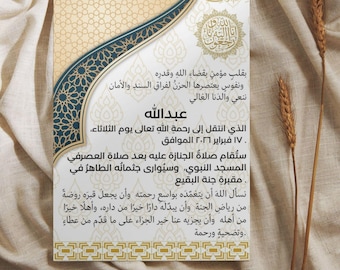 بقلبٍ مؤمنٍ بقضاء الله وقدره
ونفوس يعتصرها الحزن لفراق السند والأمان
ننعي والدنا الغالي
عبدالله
الذي انتقل إلى رحمة الله تعالى يوم الثلاثاء،
١٧ فبراير ٢٠٢٦ الموافق .
ستُقام صلاة الجنازة عليه بعد صلاة العصرفي
المسجد النبوي، وسيُوارى جثمانه الطاهرُ في
مقبرة جنة البقيع .
نسأل الله أن يتغمّده بواسع رحمته وأن يجعل قبره روضةً
من رياض الجنة وأن يبدّله دارًا خيرًا من داره، وأهلًا خيرًا
من أهله وأن يجزيه عنا خير الجزاء على ما قدّم من عطاءٍ
وتضحيةٍ ورحمة.